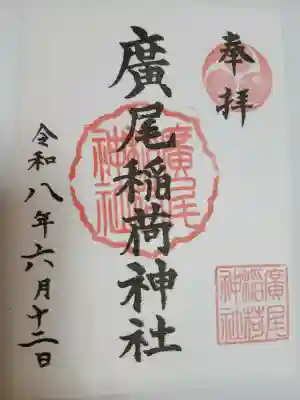 奉拝
廣尾稲荷神社
廣尾
稲荷
神社
令和八年六月十二日
廣尾
稲荷
神社